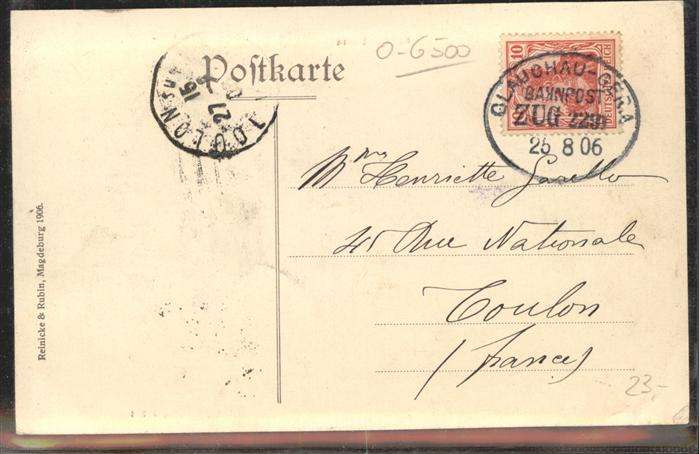 Postkarte
O-6500
TOULON
27
15
10
DEUTSCHES REICH
GLAUCHAU-GERA
BAHNPOST
ZUG 2291
25 8 06
Mme Henriette
45 Rue Nationale
Toulon
(france)
23,-
Reinicke & Rubin, Magdeburg 1906.